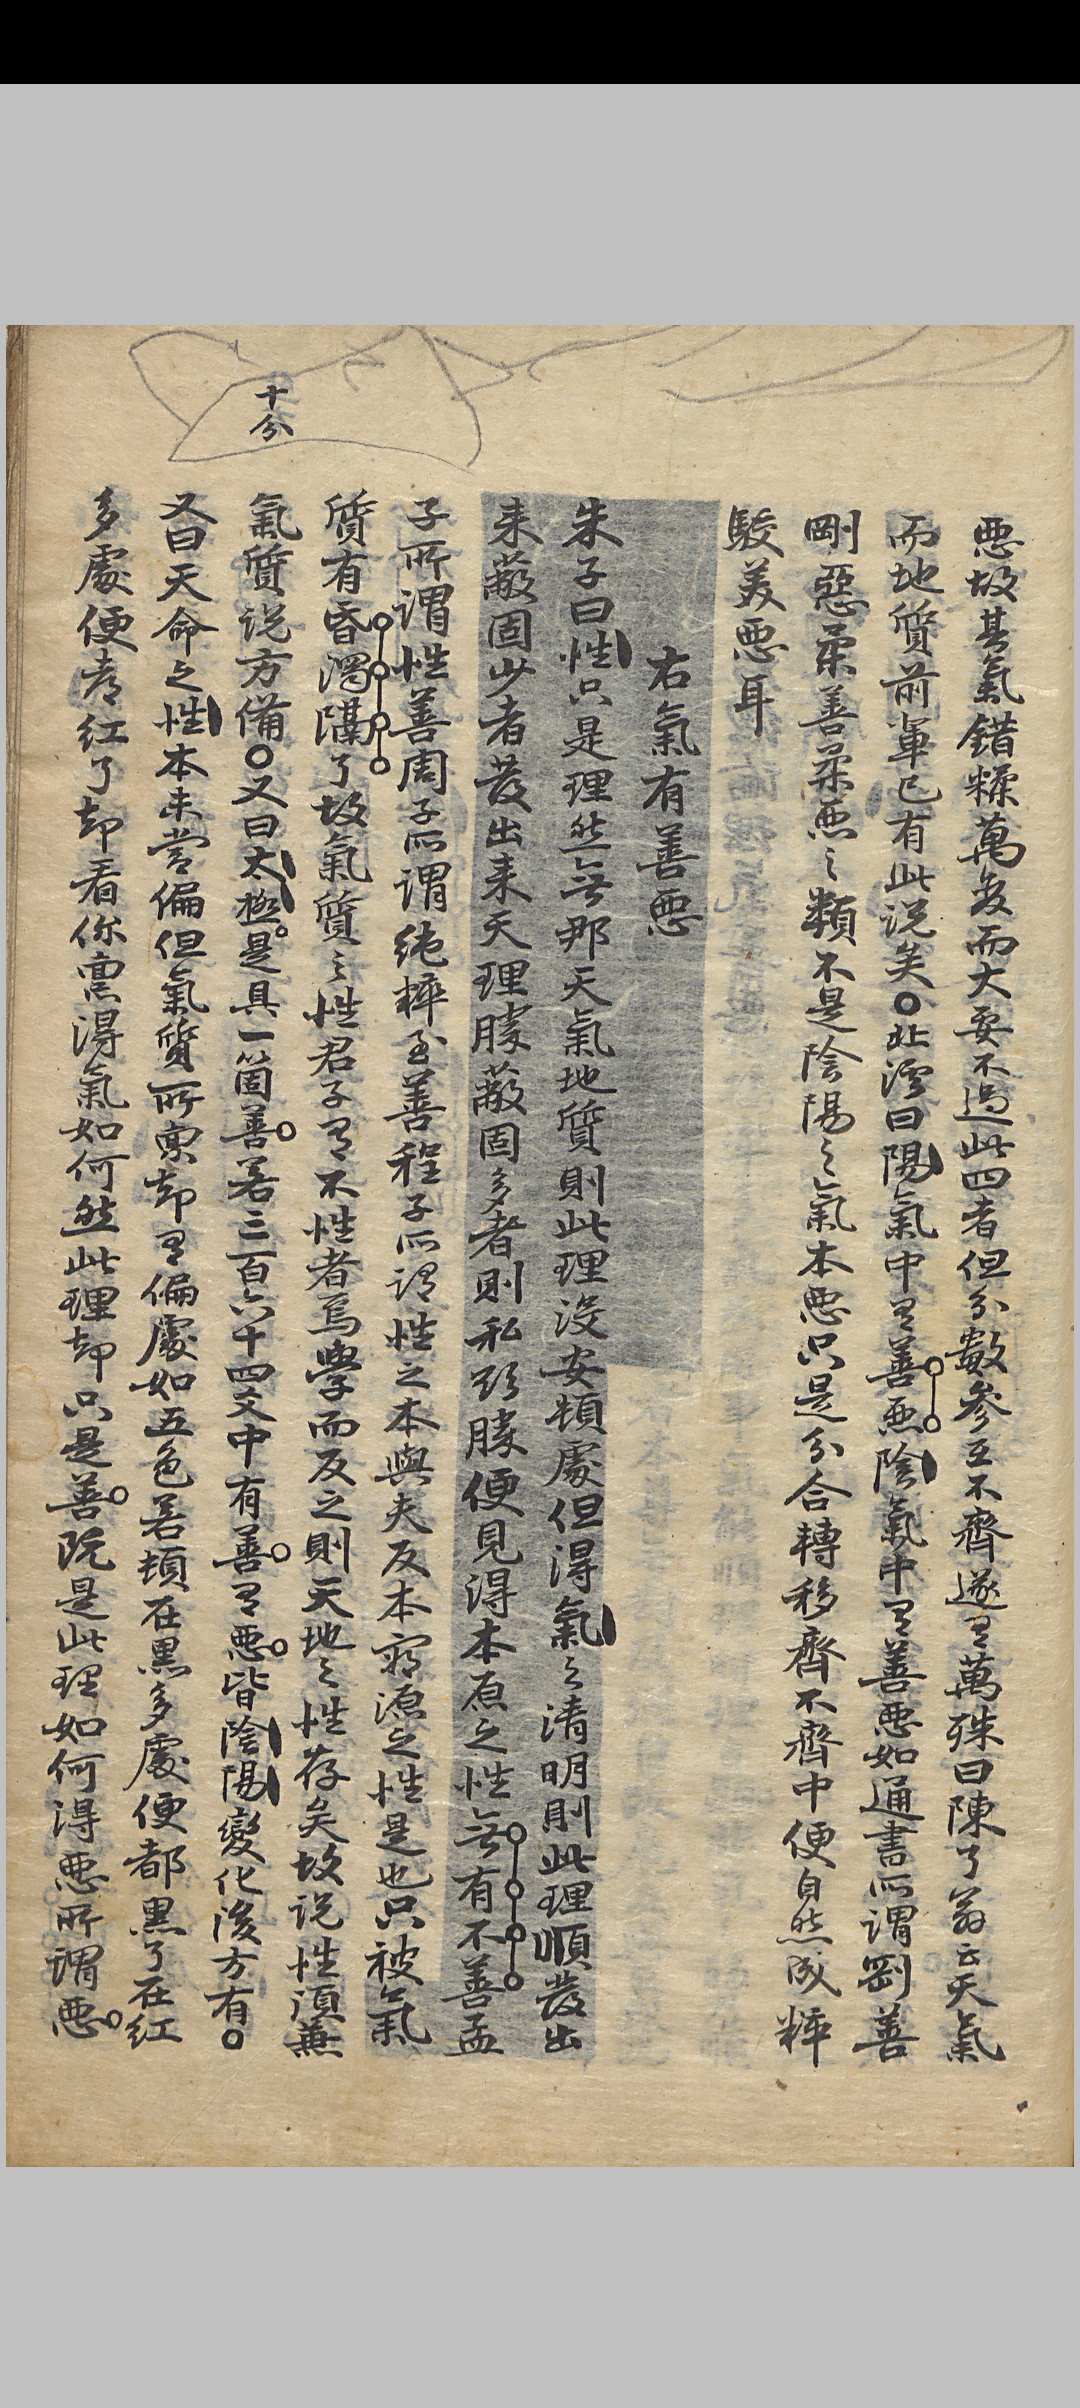 惡故其氣錯糅萬變而大要不過此四者但分數參互不齊遂有萬殊曰陳了翁云天氣
而地質前輩已有此說矣○北溪曰陽氣中有善惡陰氣中有善惡如通書所謂剛善
剛惡柔善柔惡之類不是陰陽之氣本惡只是分合轉移齊不齊中便自然成粹
駁美惡耳
右氣有善惡
朱子曰性只是理然無那天氣地質則此理沒安頓處但得氣之清明則此理順發出
來蔽固少者發出來天理勝蔽固多者則私欲勝便見得本原之性無有不善孟
子所謂性善周子所謂純粹至善程子所謂性之本與夫反本窮源之性是也只被氣
質有昏濁隔了故氣質之性君子有不性者焉學而反之則天地之性存矣故說性須兼
氣質說方備○又曰太極是具一箇善若三百六十四爻中有善有惡皆陰陽變化後方有○
又曰天命之性本未嘗偏但氣質所稟却有偏處如五色若頓在黑多處便都黑了在紅
多處便都紅了却看你稟得氣如何然此理却只是善旣是此理如何得惡所謂惡
十分